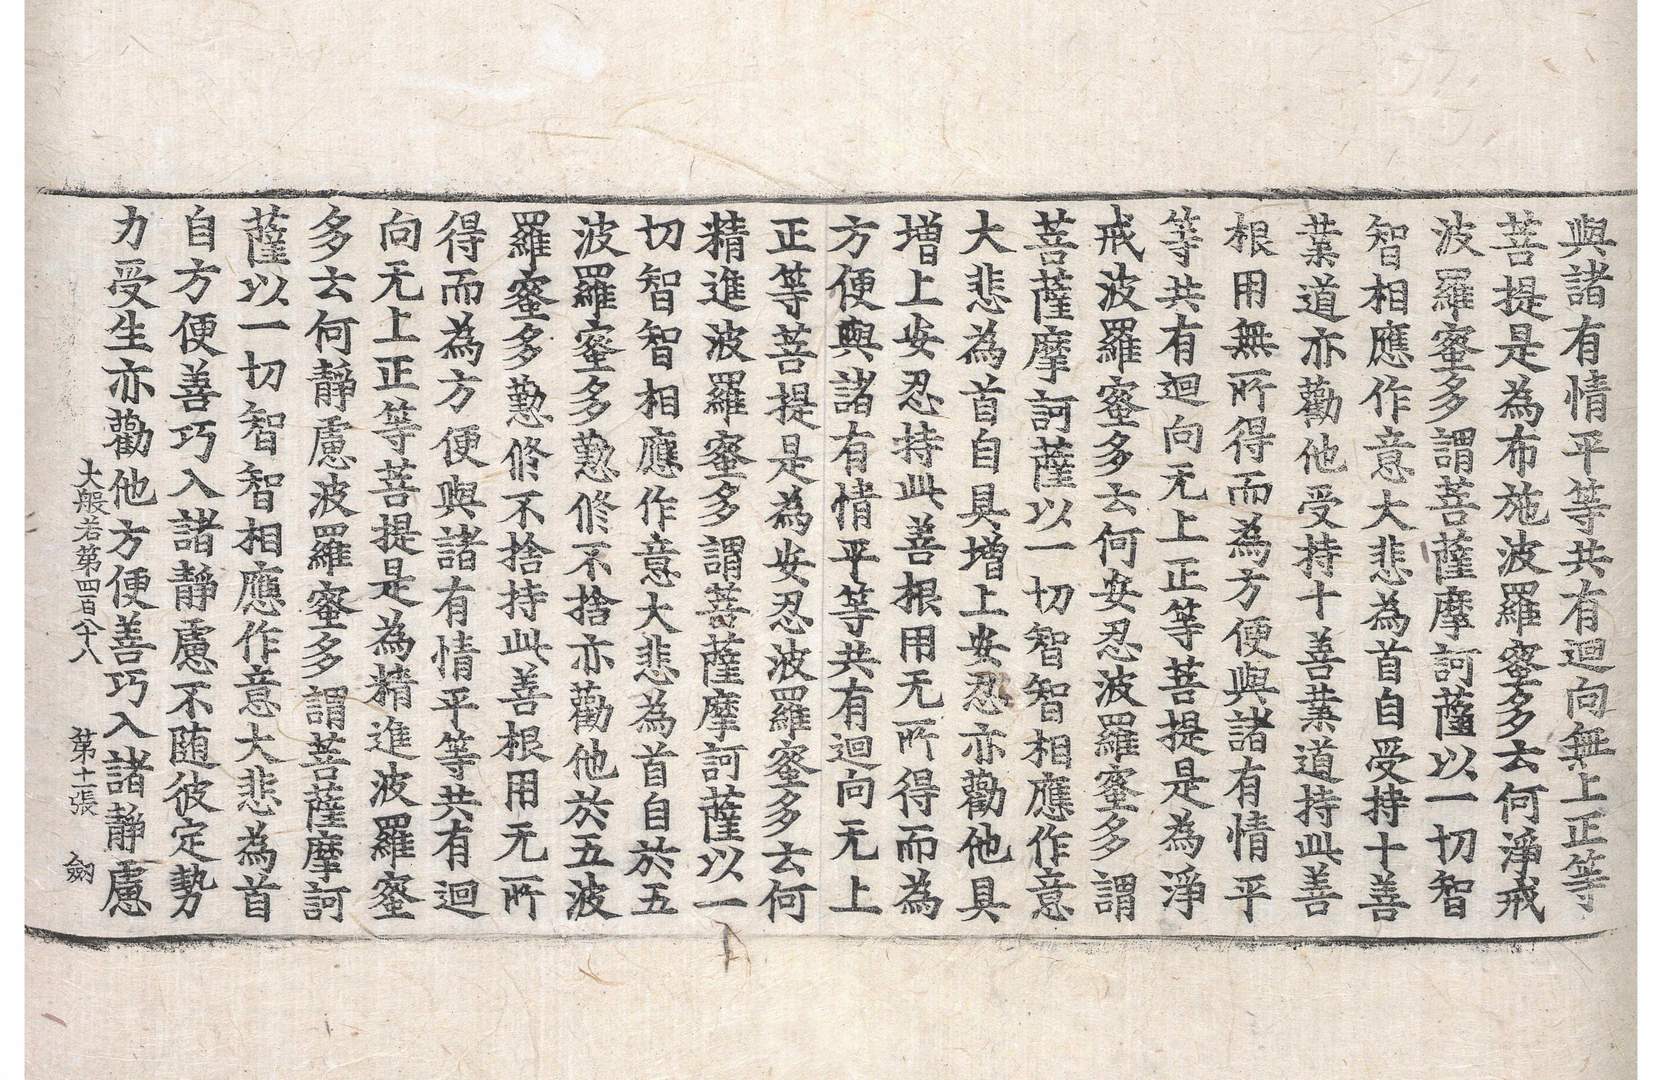 與諸有情平等共有迴向無上正等
菩提是為布施波羅蜜多云何淨戒
波羅蜜多謂菩薩摩訶薩以一切智
智相應作意大悲為首自受持十善
業道亦勸他受持十善業道持此善
根用無所得而為方便與諸有情平
等共有迴向无上正等菩提是為淨
戒波羅蜜多云何安忍波羅蜜多謂
菩薩摩訶薩以一切智智相應作意
大悲為首自具增上安忍亦勸他具
增上安忍持此善根用无所得而為
方便與諸有情平等共有迴向无上
正等菩提是為安忍波羅蜜多云何
精進波羅蜜多謂菩薩摩訶薩以一
切智智相應作意大悲為首自於五
波羅蜜多懃修不捨亦勸他於五波
羅蜜多懃修不捨持此善根用无所
得而為方便與諸有情平等共有迴
向无上正等菩提是為精進波羅蜜
多云何靜慮波羅蜜多謂菩薩摩訶
薩以一切智智相應作意大悲為首
自方便善巧入諸靜慮不随彼定勢
力受生亦勸他方便善巧入諸靜慮
大般若第四百八十八 第十一張 劒